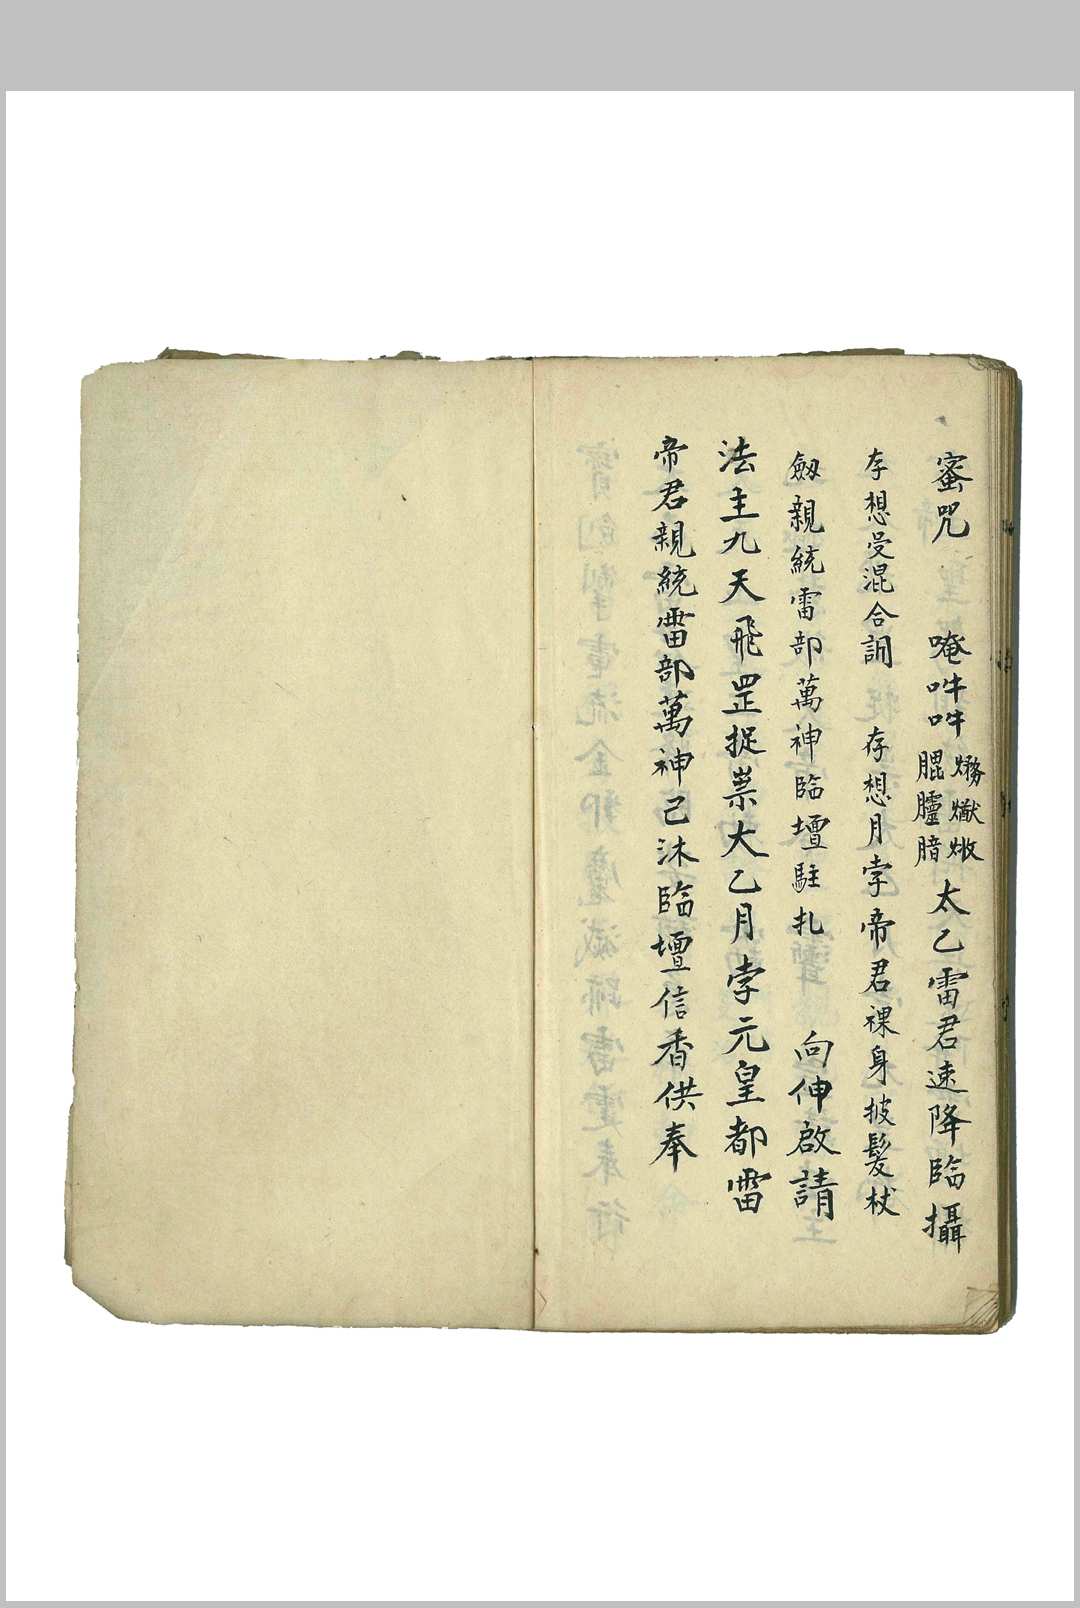 蜜咒　唵吽吽 㷀㷎㶷 腽臛腤 太乙雷君速降臨攝
存想受混合訶 存想月孛帝君裸身披髮杖
劔親統雷部萬神臨壇駐扎 向伸啟請
法主九天飛罡捉祟大乙月孛元皇都雷
帝君親統雷部萬神己沐臨壇信香供奉